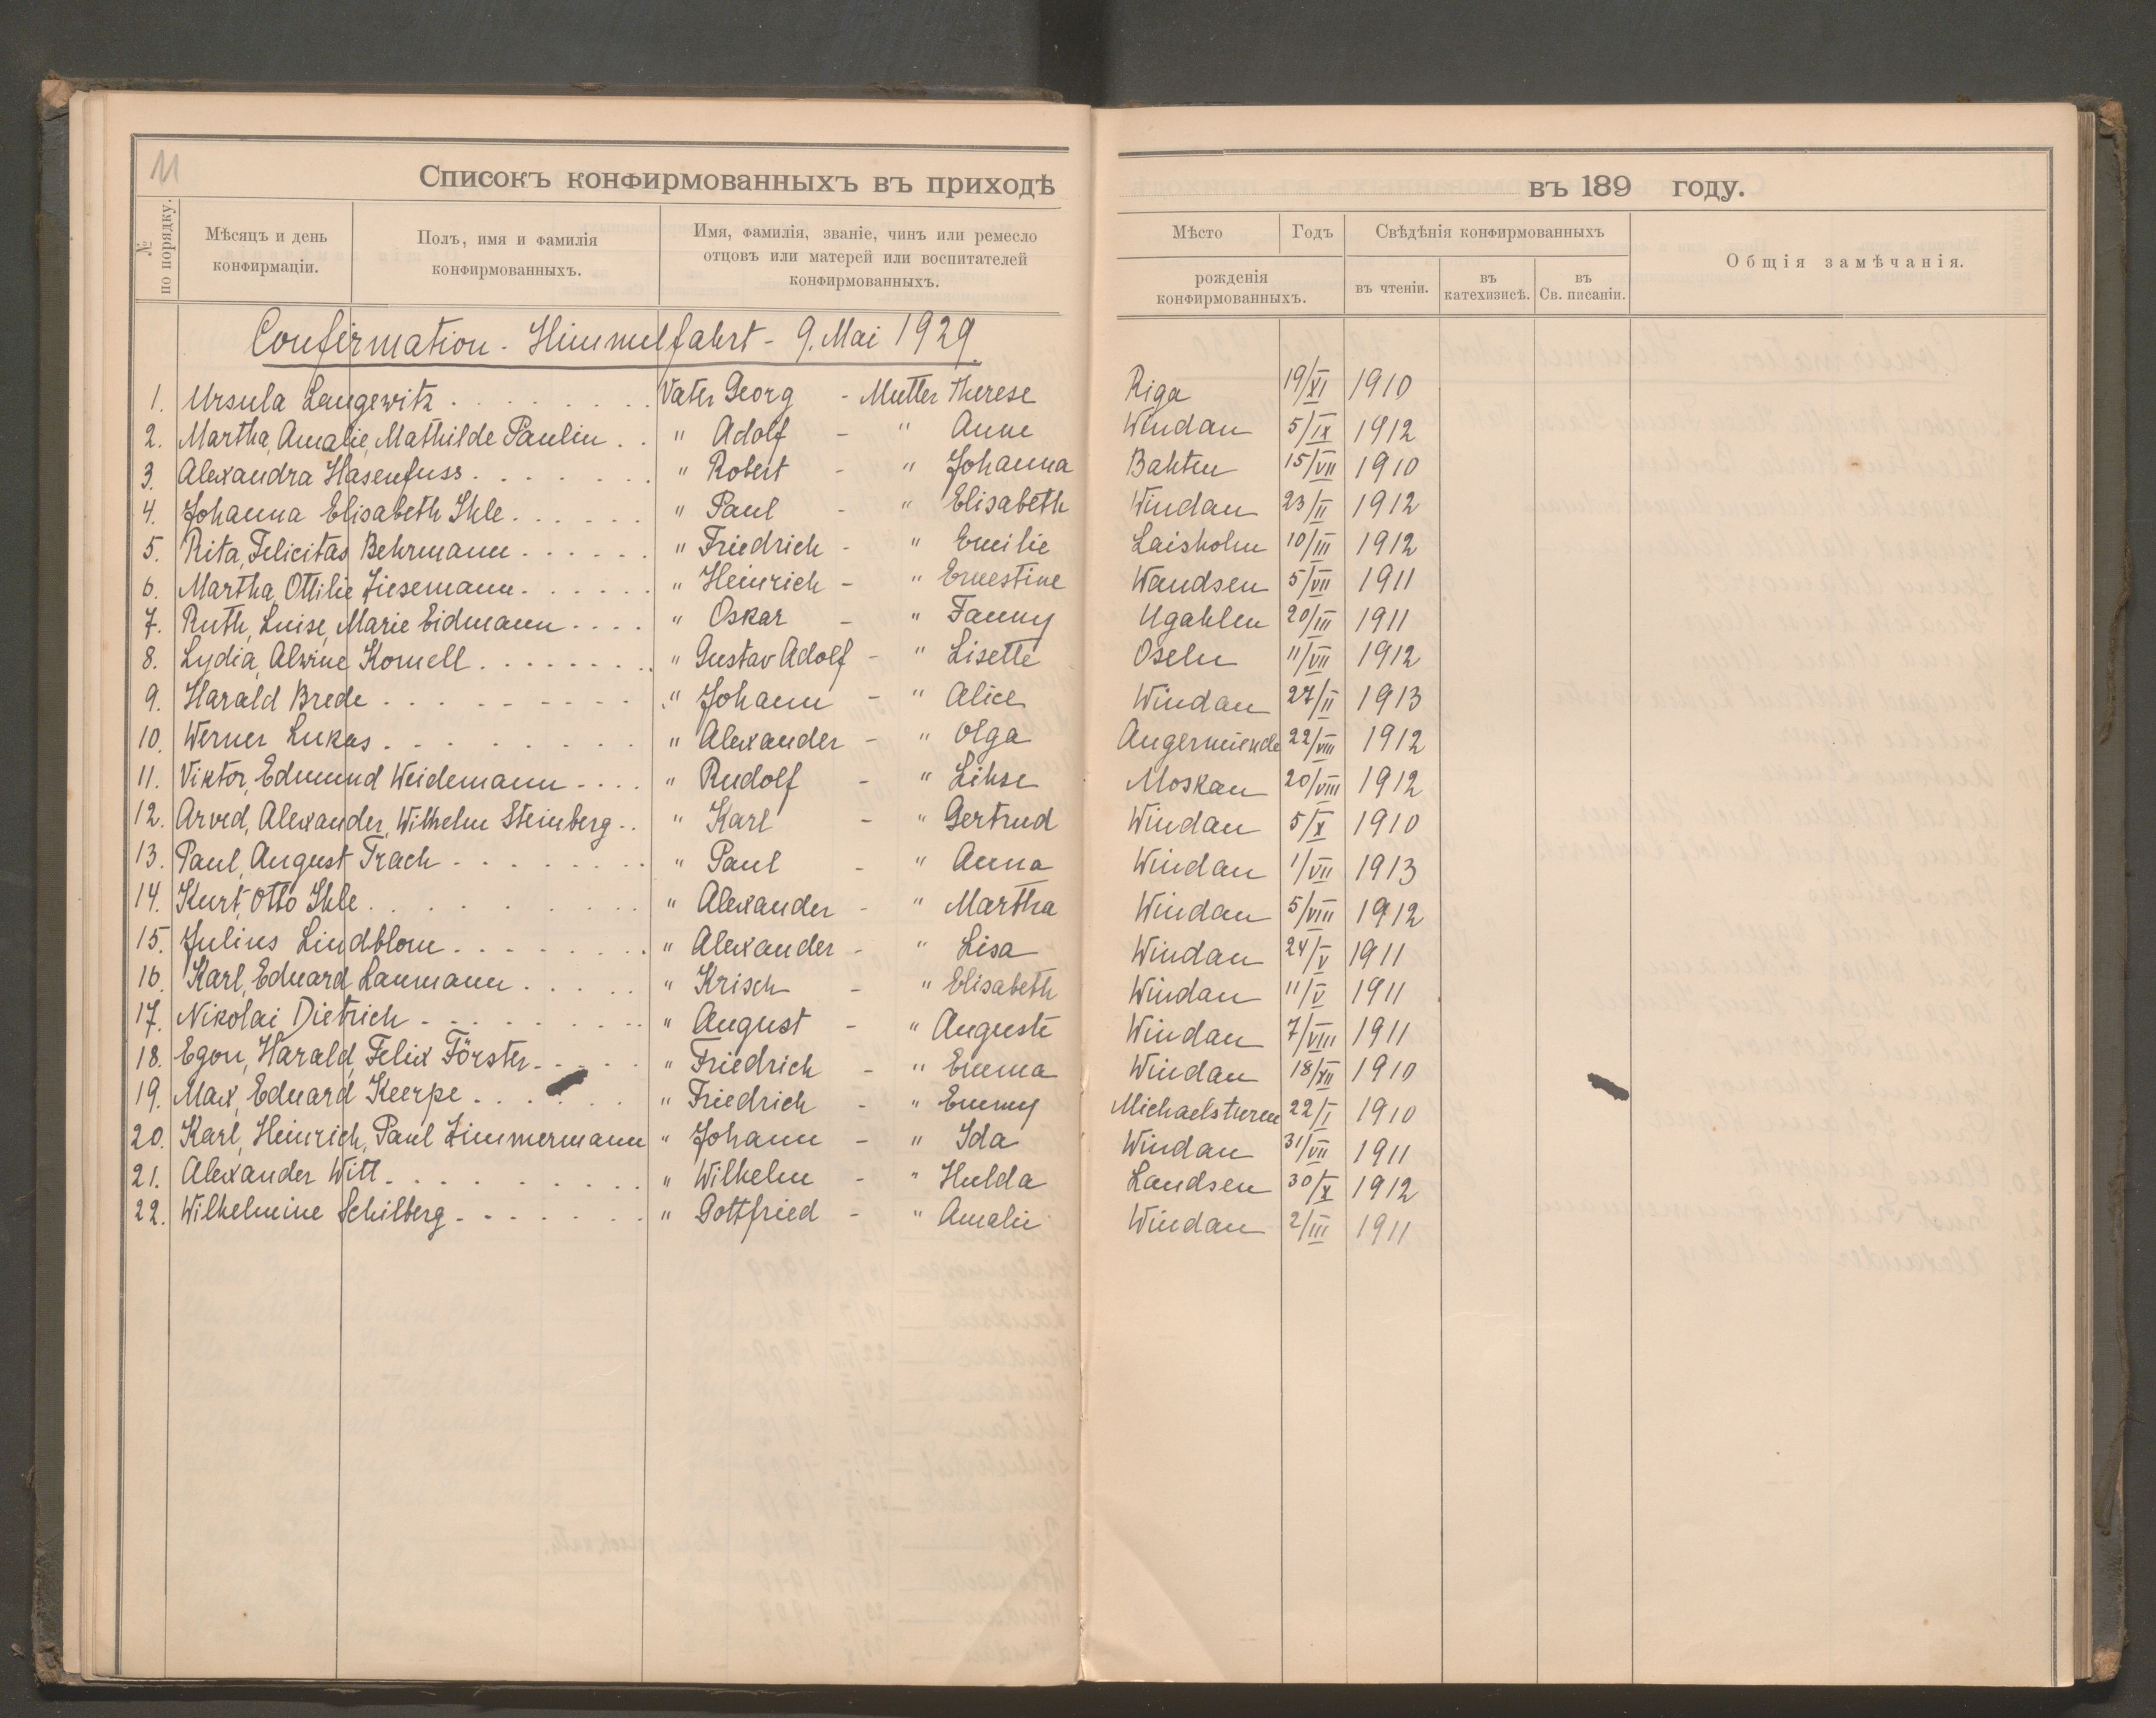 11
Списокъ конфирмованныхъ въ приходѣ въ 189 году.
№ по порядку.
Мѣсяцъ и день конфирмаціи.
Полъ, имя и фамилія конфирмованныхъ.
Имя, фамилія, званіе, чинъ или ремесло отцовъ или матерей или воспитателей конфирмованныхъ.
Мѣсто Годъ рожденія конфирмованныхъ.
Свѣдѣнія конфирмованныхъ
въ чтеніи. въ катехизисѣ. въ Св. писаніи.
Общія замѣчанія.
Confirmation - Himmelfahrt - 9. Mai 1929
1. Ursula Langewitz . . . . . . . . Vater Georg - Mutter Therese Riga 19/XI 1910
2. Martha, Amalie, Mathilde Paulin . . " Adolf - " Anne Windau 5/IX 1912
3. Alexandra Hasenfuss . . . . . . . " Robert - " Johanna Bahten 15/VII 1910
4. Johanna Elisabeth Ihle . . . . . . " Paul - " Elisabeth Windau 23/II 1912
5. Rita, Felicitas Behrmann . . . . . . " Friedrich - " Emilie Laisholm 10/III 1912
6. Martha, Ottilie Ziesemann . . . . . . " Heinrich - " Ernestine Wandsen 5/VII 1911
7. Ruth, Luise, Marie Eidmann . . . . " Oskar - " Fanny Ugahlen 20/III 1911
8. Lydia, Alwine Kornell . . . . . . . . " Gustav Adolf - " Lisette Oseln 11/VII 1912
9. Harald Brede . . . . . . . . . " Johann - " Alice Windau 27/II 1913
10. Werner Lukas . . . . . . . . " Alexander - " Olga Angermünde 22/VIII 1912
11. Viktor, Edmund Weidemann . . . . " Rudolf - " Lihse Moskau 20/VIII 1912
12. Arved, Alexander, Wilhelm Steinberg . . " Karl - " Gertrud Windau 5/X 1910
13. Paul, August Trach . . . . . . . " Paul - " Anna Windau 1/VII 1913
14. Kurt, Otto Ihle . . . . . . . . . " Alexander - " Martha Windau 5/VIII 1912
15. Julius Lindblom . . . . . . . . " Alexander - " Lisa Windau 24/V 1911
16. Karl, Eduard Laumann . . . . . " Krisch - " Elisabeth Windau 11/V 1911
17. Nikolai Dietrich . . . . . . . . . " August - " Auguste Windau 7/VIII 1911
18. Egon, Harald, Felix Förster . . . . . " Friedrich - " Emma Windau 18/XII 1910
19. Max, Eduard Keerpe . . . . . . " Friedrich - " Emmy Michaelsturm 22/I 1910
20. Karl, Heinrich, Paul Zimmermann " Johann - " Ida Windau 31/VII 1911
21. Alexander Witt . . . . . . . . . . " Wilhelm - " Hulda Landsen 30/X 1912
22. Wilhelmine Schilberg . . . . . . . " Gottfried - " Amalie Windau 2/III 1911